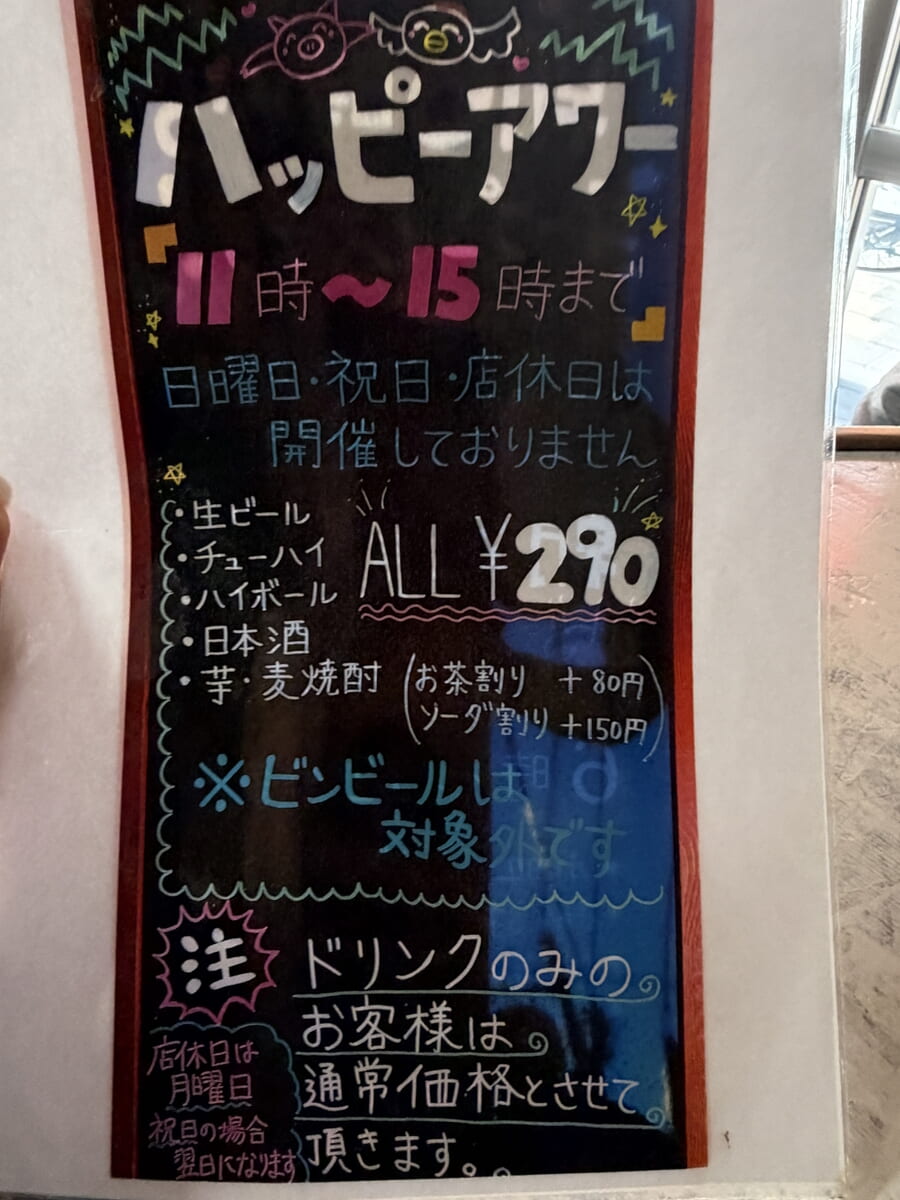 ハッピーアワー
11時〜15時まで
日曜日・祝日・店休日は
開催しておりません
・生ビール
・チューハイ
・ハイボール
・日本酒
・芋・麦焼酎
ALL ¥290
(お茶割り +80円
ソーダ割り +150円)
※ビンビールは
対象外です
注
ドリンクのみの
お客様は
通常価格とさせて
頂きます。
店休日は
月曜日
祝日の場合
翌日になります